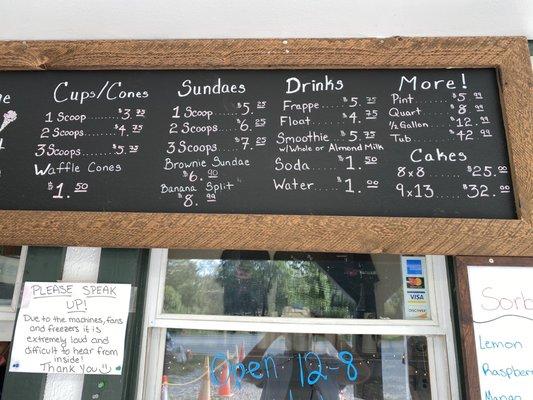 Cups/Cones
1 Scoop $3.75
2 Scoops $4.75
3 Scoops $5.75
Waffle Cones
$1.50
Sundaes
1 Scoop $5.25
2 Scoops $6.25
3 Scoops $7.25
Brownie Sundae
$6.90
Banana Split
$8.99
Drinks
Frappe $5.75
Float $4.75
Smoothie $5.75
w/Whole or Almond Milk
Soda $1.50
Water $1.00
More!
Pint $5.99
Quart $8.99
1/2 Gallon $12.99
Tub $42.99
Cakes
8x8 $25.00
9x13 $32.00
PLEASE SPEAK
UP!
Due to the machines, fans
and freezers it is
extremely loud and
difficult to hear from
inside!
Thank You
Open 12-8
VISA
DISCOVER
Sorb
Lemon
Raspber
Mango